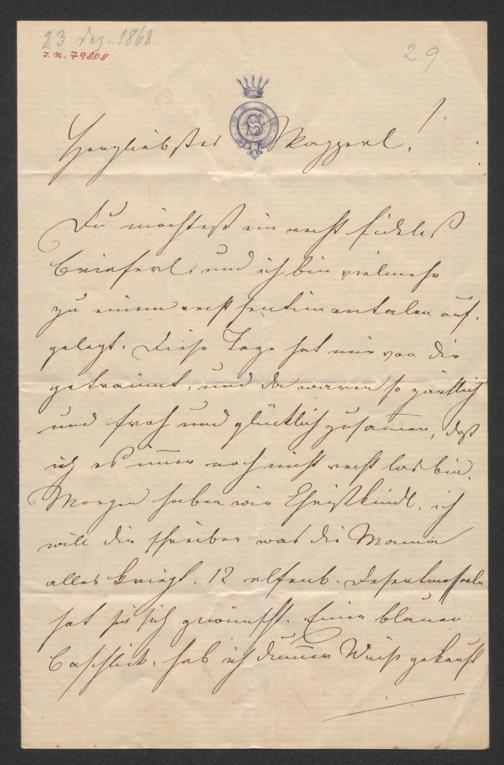 23 Dez. 1868
I.N. 79808
29
S
Herzliebster !
Du möchtest ein recht fideles
Brieferl, und ich bin vielmehr
zu einem recht sentimentalen auf-
gelegt. Diese Tage hat mir von dir
geträumt, und da waren so zärtlich
und froh und glücklich zusammen, daß
ich es immer noch nicht recht los bin.
Morgen haben wir Christkindl, ich
will dir schreiben was die Mama
alles kriegt. 12 elfenb. Desertmesserln
hat sie sich gewünscht. Einen blauen
Baschlick, hab ich dummer Weise gekauft